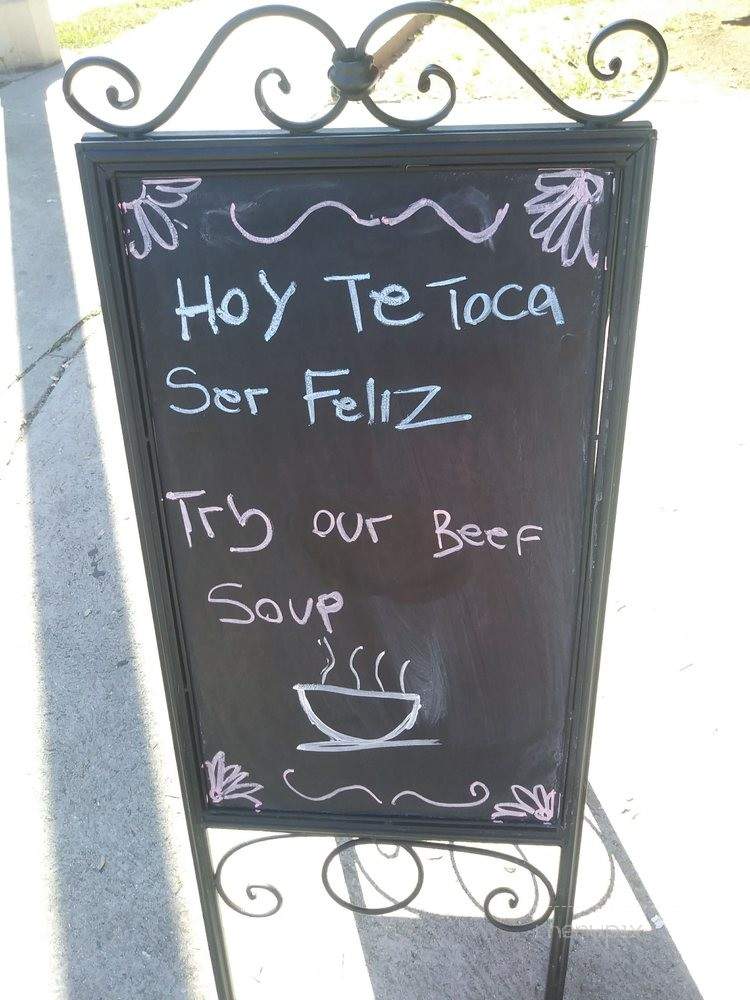 Hoy Te Toca
Ser Feliz
Try our Beef
Soup
menupix